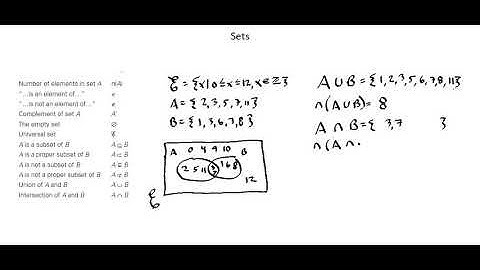 Sets
Number of elements in set A n(A)
"...is an element of..." ∈
"...is not an element of..." ∉
Complement of set A A′
The empty set ∅
Universal set ℰ
A is a subset of B A ⊆ B
A is a proper subset of B A ⊂ B
A is not a subset of B A ⊈ B
A is not a proper subset of B A ⊄ B
Union of A and B A ∪ B
Intersection of A and B A ∩ B
ℰ = {x | 0 ≤ x ≤ 12, x ∈ ℤ}
A = {2, 3, 5, 7, 11}
B = {1, 3, 6, 7, 8}
A 0 4 9 10 B
2 5 11 3 7 1 6 8
12
ℰ
A ∪ B = {1, 2, 3, 5, 6, 7, 8, 11}
n(A ∪ B) = 8
A ∩ B = {3, 7 }
n(A ∩